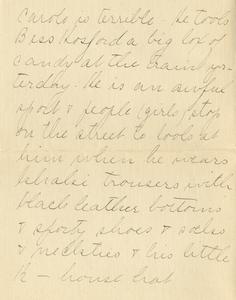 Carol is terrible. He took
Bess Hosford a big box of
candy at the train yes-
terday. He is an awful
sport & people (girls) stop
on the street to look at
him when he wears
trousers with
black leather bottoms
& sporty shoes & socks
& neckties & his little
K — house hat